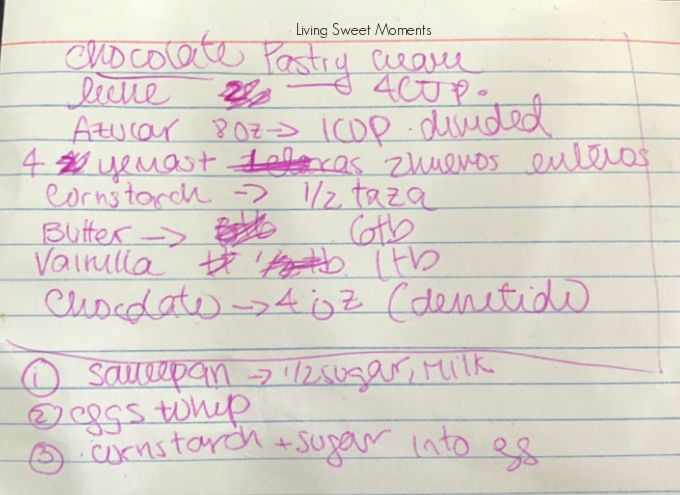 Living Sweet Moments
Chocolate Pastry cream
leche → 4 CUP.
Azucar 8oz → 1 CUP. divided
4 yemas + 2 huevos enteros
Cornstarch → 1/2 taza
Butter → 6tb
Vainilla 1tb
Chocolate → 4 oz (derretido)
① saucepan → 1/2 sugar, Milk
② eggs whip
③ cornstarch + sugar into